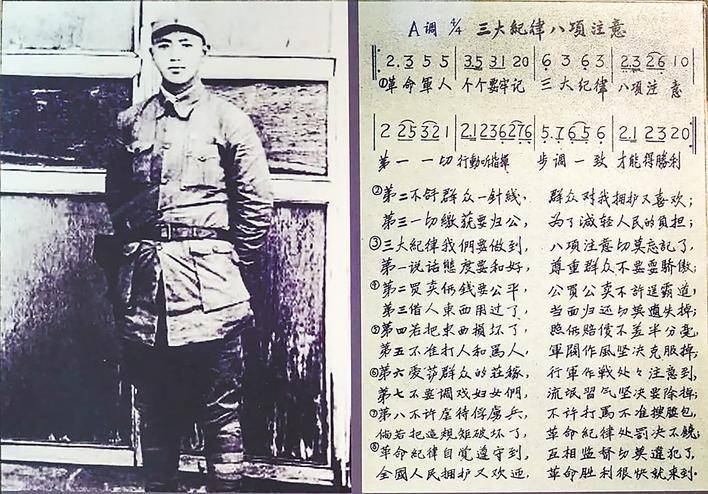 A调 4/4 三大紀律八項注意
2. 3 5 5 | 3 5 3 1 2 0 | 6 3 6 3 | 2 3 2 6 1 0 |
①革命軍人 个个要牢记 三大纪律 八項注意
2 2 5 3 2 1 | 2. 1 2 3 6 2 7 6 | 5. 7 6 5 6 | 2. 1 2 3 2 0
第一一切 行動听指揮 步调一致 才能得勝利
②第二不許群众一針綫， 群众对我拥护又喜欢；
第三一切缴获要归公， 为了减轻人民的負担；
③三大紀律我們要做到， 八項注意切莫忘記了，
第一说话態度要和好， 尊重群众不要耍驕傲；
④第二買卖价錢要公平， 公買公卖不許逞霸道，
第三借人東西用过了， 当面归还切莫遗失掉；
⑤第四若把東西損坏了， 照价賠償不差半分毫，
第五不准打人和罵人， 軍閥作風坚决克服掉；
⑥第六爱护群众的莊稼， 行軍作戰处々注意到，
第七不要调戏妇女們， 流氓習气坚决要除掉；
⑦第八不許虐待俘虏兵， 不許打罵不准搜腰包，
倘若把這規矩破坏了， 革命紀律处罰决不饒；
⑧革命紀律自覚遵守到， 互相监督切莫違犯了，
全國人民拥护又欢迎， 革命勝利很快就来到.